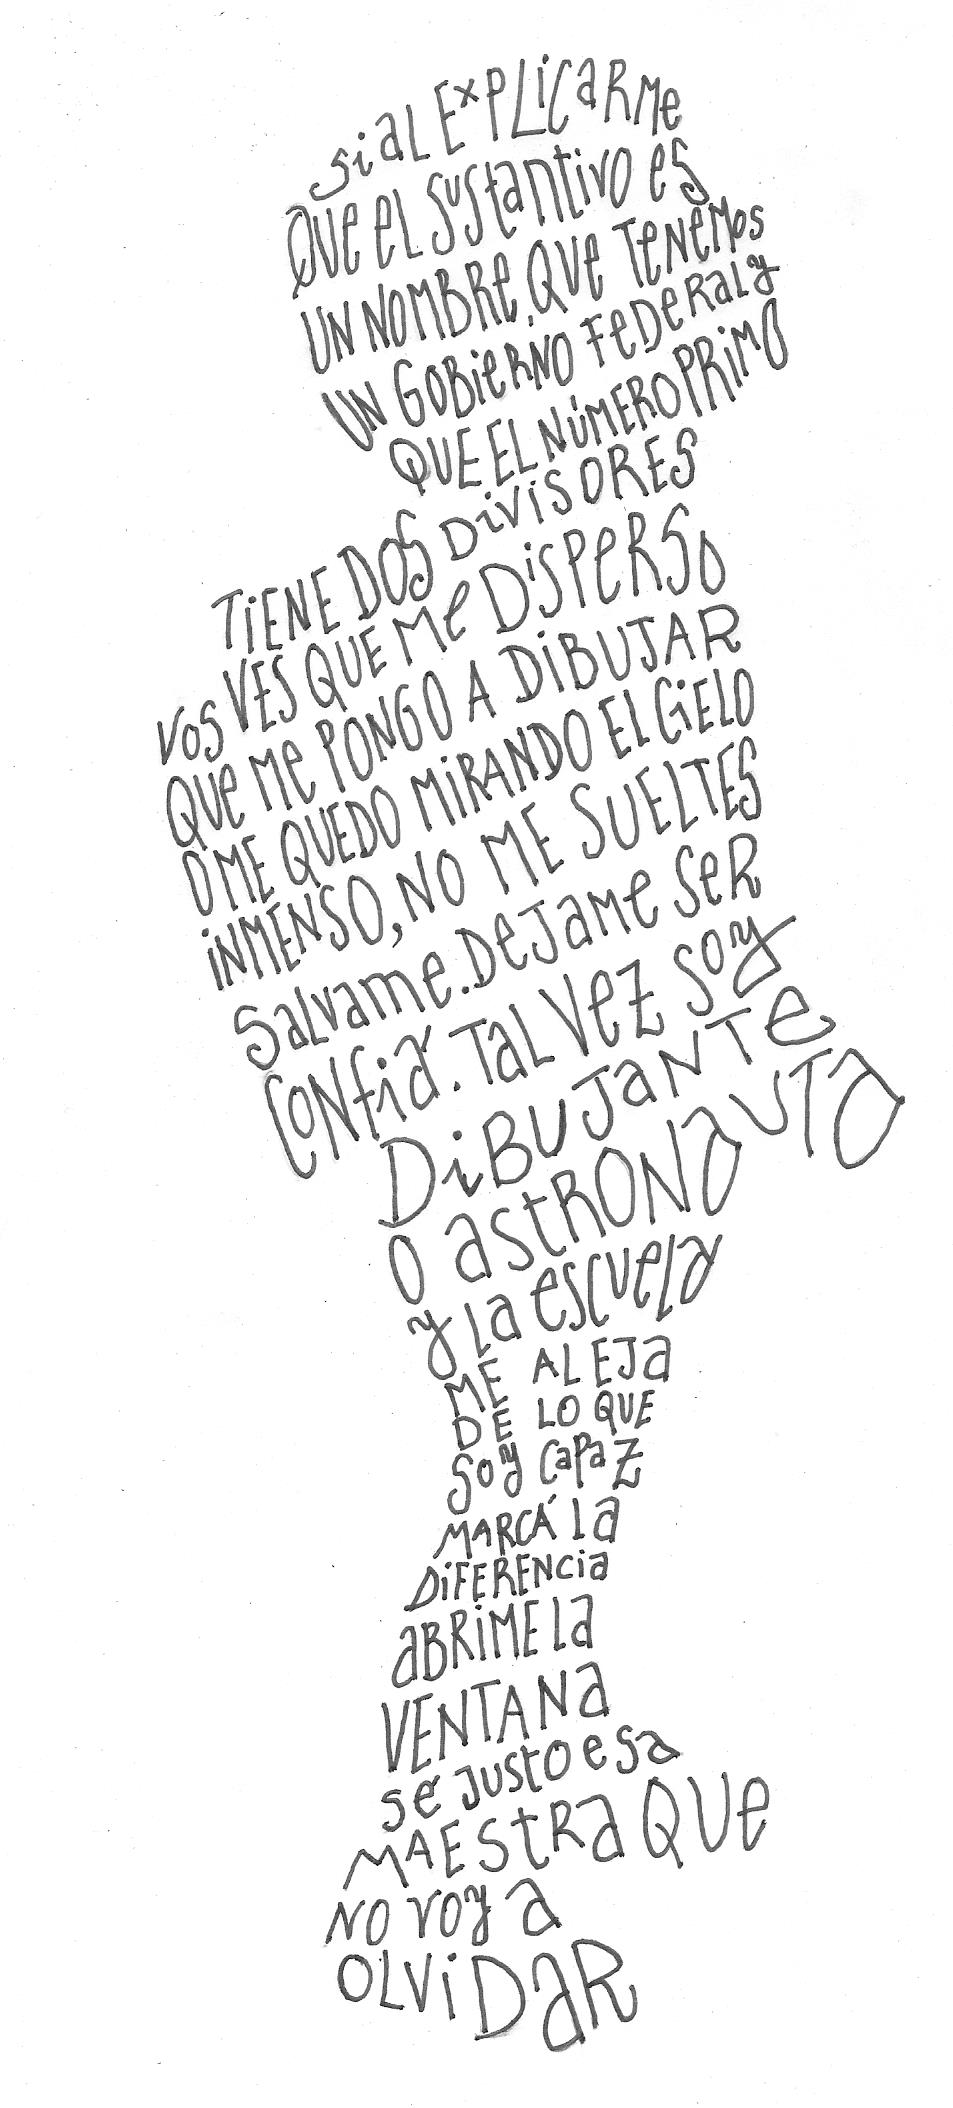 si al EXPLiCaRMe
QUe eL sustantivo es
UN NOMBRe, QUe TeNeMos
UN GOBieRNO FeDeRaL y
QUE EL NÚMERO PRiMO
TiENE DOS DiViSORES
VOS VES QUE Me DiSPeRSO
QUe Me PONGO A DiBUJAR
O ME QUEDO MiRANDO EL CiELO
iNMENSO, NO ME SUELTES
Salvame. DeJaMe SeR
CONfiá. Tal Vez soy
DiBUJANTe
O astRONauTa
y La escuela
ME ALEJa
DE LO QUE
soy CaPaZ
MARCÁ La
DiFERENcia
aBRiME La
VENTANa
sé Justo esa
MAESTRa QUe
NO VOy a
OLViDaR